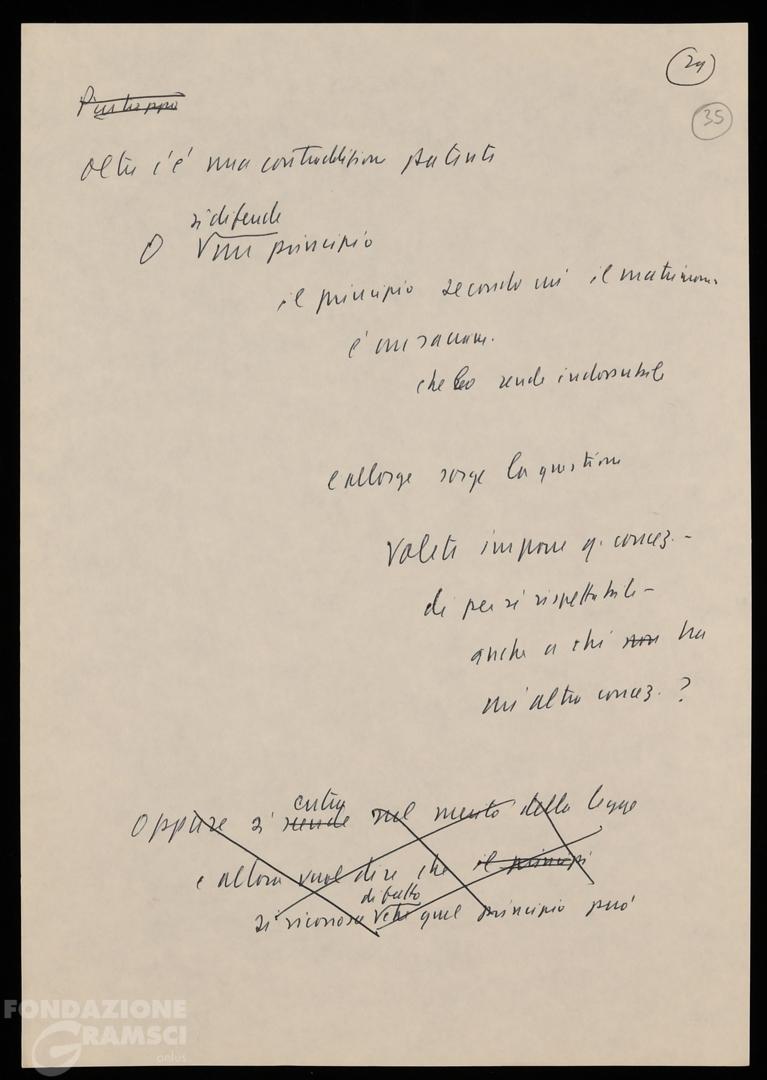 29
35
Purtroppo
Oltre c'è una contraddizione patente
si difende
O un principio
il principio secondo cui il matrimon.
è un sacram.
che lo rende indissolubile
e allora sorge la questione
Volete imporre q. concez. -
di per sé rispettabile -
anche a chi non ha
un'altra concez. ?
entra
Oppure si nel merito della legge
e allora vuol dire che il principi
di fatto
si riconosce che quel principio può
FONDAZIONE
GRAMSCI
onlus